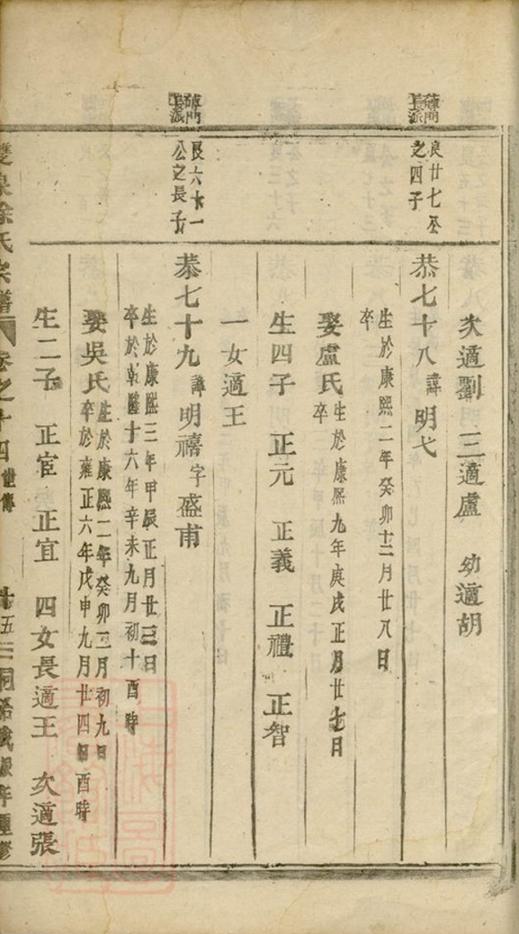 次適劉 三適盧 幼適胡
良廿七公
之四子
恭七十八諱明弋
生於康熙二年癸卯十二月廿八日
卒
娶盧氏生於康熙九年庚戌正月廿七日
卒
生四子 正元 正義 正禮 正智
一女適王
良六十一
公之長子
恭七十九諱明禧字盛甫
生於康熙三年甲辰正月廿三日
卒於乾隆十六年辛未九月初十酉時
娶吳氏生於康熙二年癸卯三月初九日
卒於雍正六年戊申九月廿四日酉時
生二子 正宦 正宜 四女長適王 次適張
徐氏宗譜 卷之十四世傳